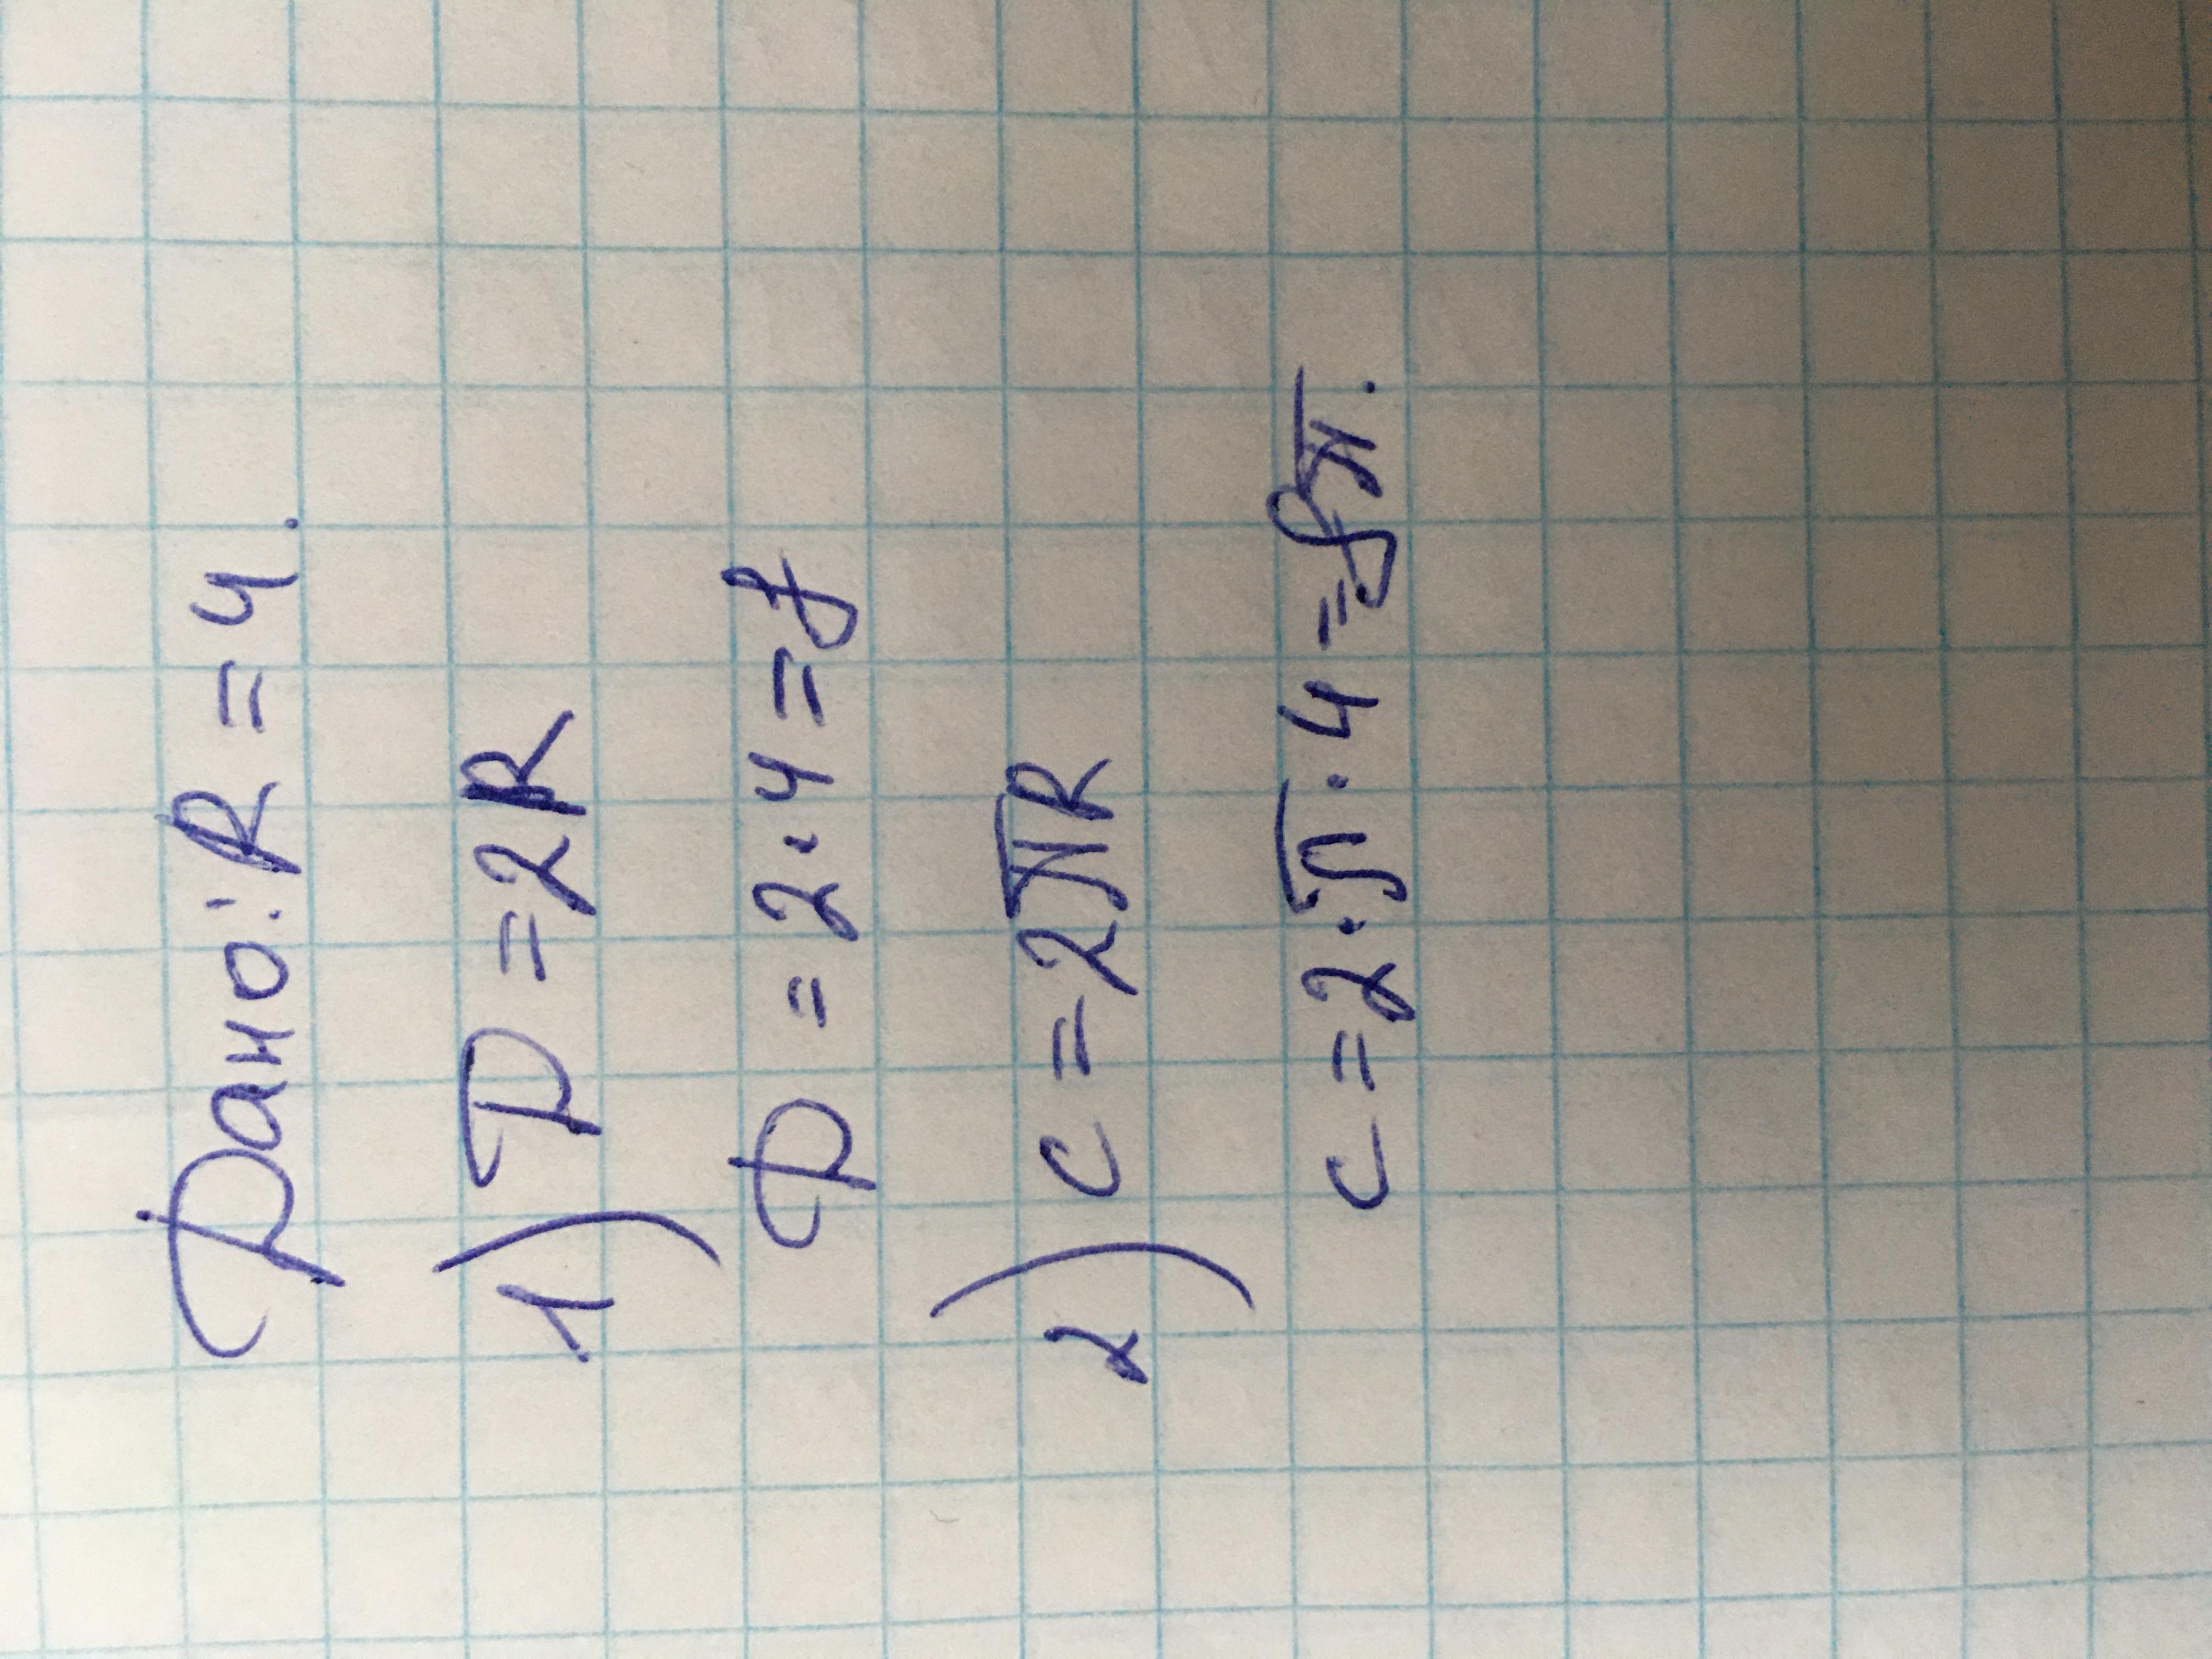 Дано: R = 4.
1) D = 2R
D = 2 · 4 = 8
2) c = 2πR
c = 2 · π · 4 = 8π.